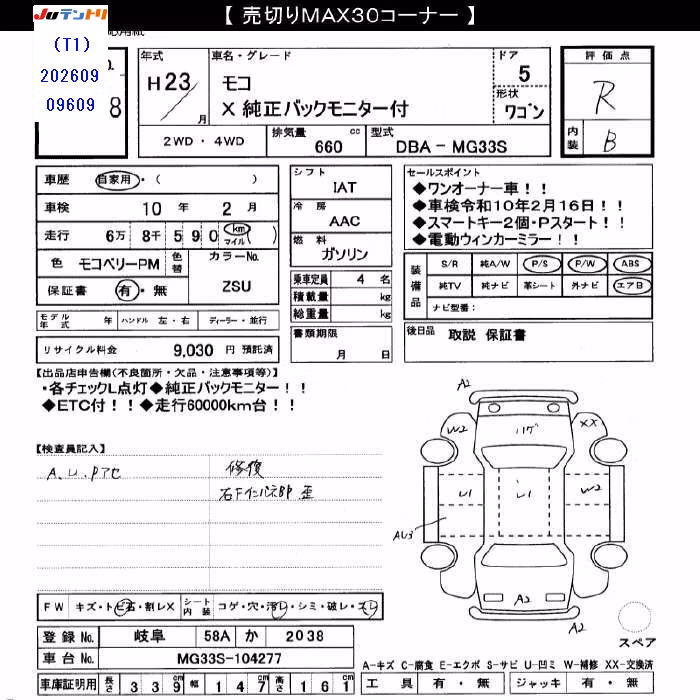 【 売切りMAX30コーナー 】
JUテントリ
(T1)
202609
09609
8
年式
H23/
月
車名・グレード
モコ
X 純正バックモニター付
ドア
5
形状
ワゴン
評価点
R
内装
B
2WD ・ 4WD
排気量
660 cc
型式
DBA − MG33S
車歴 自家用・( )
車検 10 年 2 月
走行 6万 8千 5 9 0 (km マイル)
色 モコベリーPM 色替 カラーNo.
保証書 有・無 ZSU
モデル年式 年 ハンドル 左・右 ディーラー・並行
リサイクル料金 9,030 円 預託済
シフト
IAT
冷房
AAC
燃料
ガソリン
乗車定員 4 名
積載量 kg
総重量 kg
書類期限
月 日
セールスポイント
◆ワンオーナー車！！
◆車検令和10年2月16日！！
◆スマートキー2個・Pスタート！！
◆電動ウィンカーミラー！！
装備品
S/R 純A/W P/S P/W ABS
純TV 純ナビ 革シート 外ナビ エアB
ナビ型番:
後日品 取説 保証書
【出品店申告欄(不良箇所・欠品・注意事項等)】
・各チェックL点灯◆純正バックモニター！！
◆ETC付！！◆走行60000km台！！
【検査員記入】
A、U、Pアセ
修復
右Fインパネ部 歪
FW キズ・トビ石・割レX シート内装 コゲ・穴・汚レ・シミ・破レ・スレ
登録 No. 岐阜 58A か 2038
車台 No. MG33S-104277
車庫証明用 長さ 3 3 9 幅 1 4 7 高さ 1 6 1
A2
W2
ハゲ
XX
U1
U1
W2
AU3
A2
A2
スペア
A-キズ C-腐食 E-エクボ S-サビ U-凹ミ W-補修 XX-交換済
工具 有・無 ジャッキ 有・無